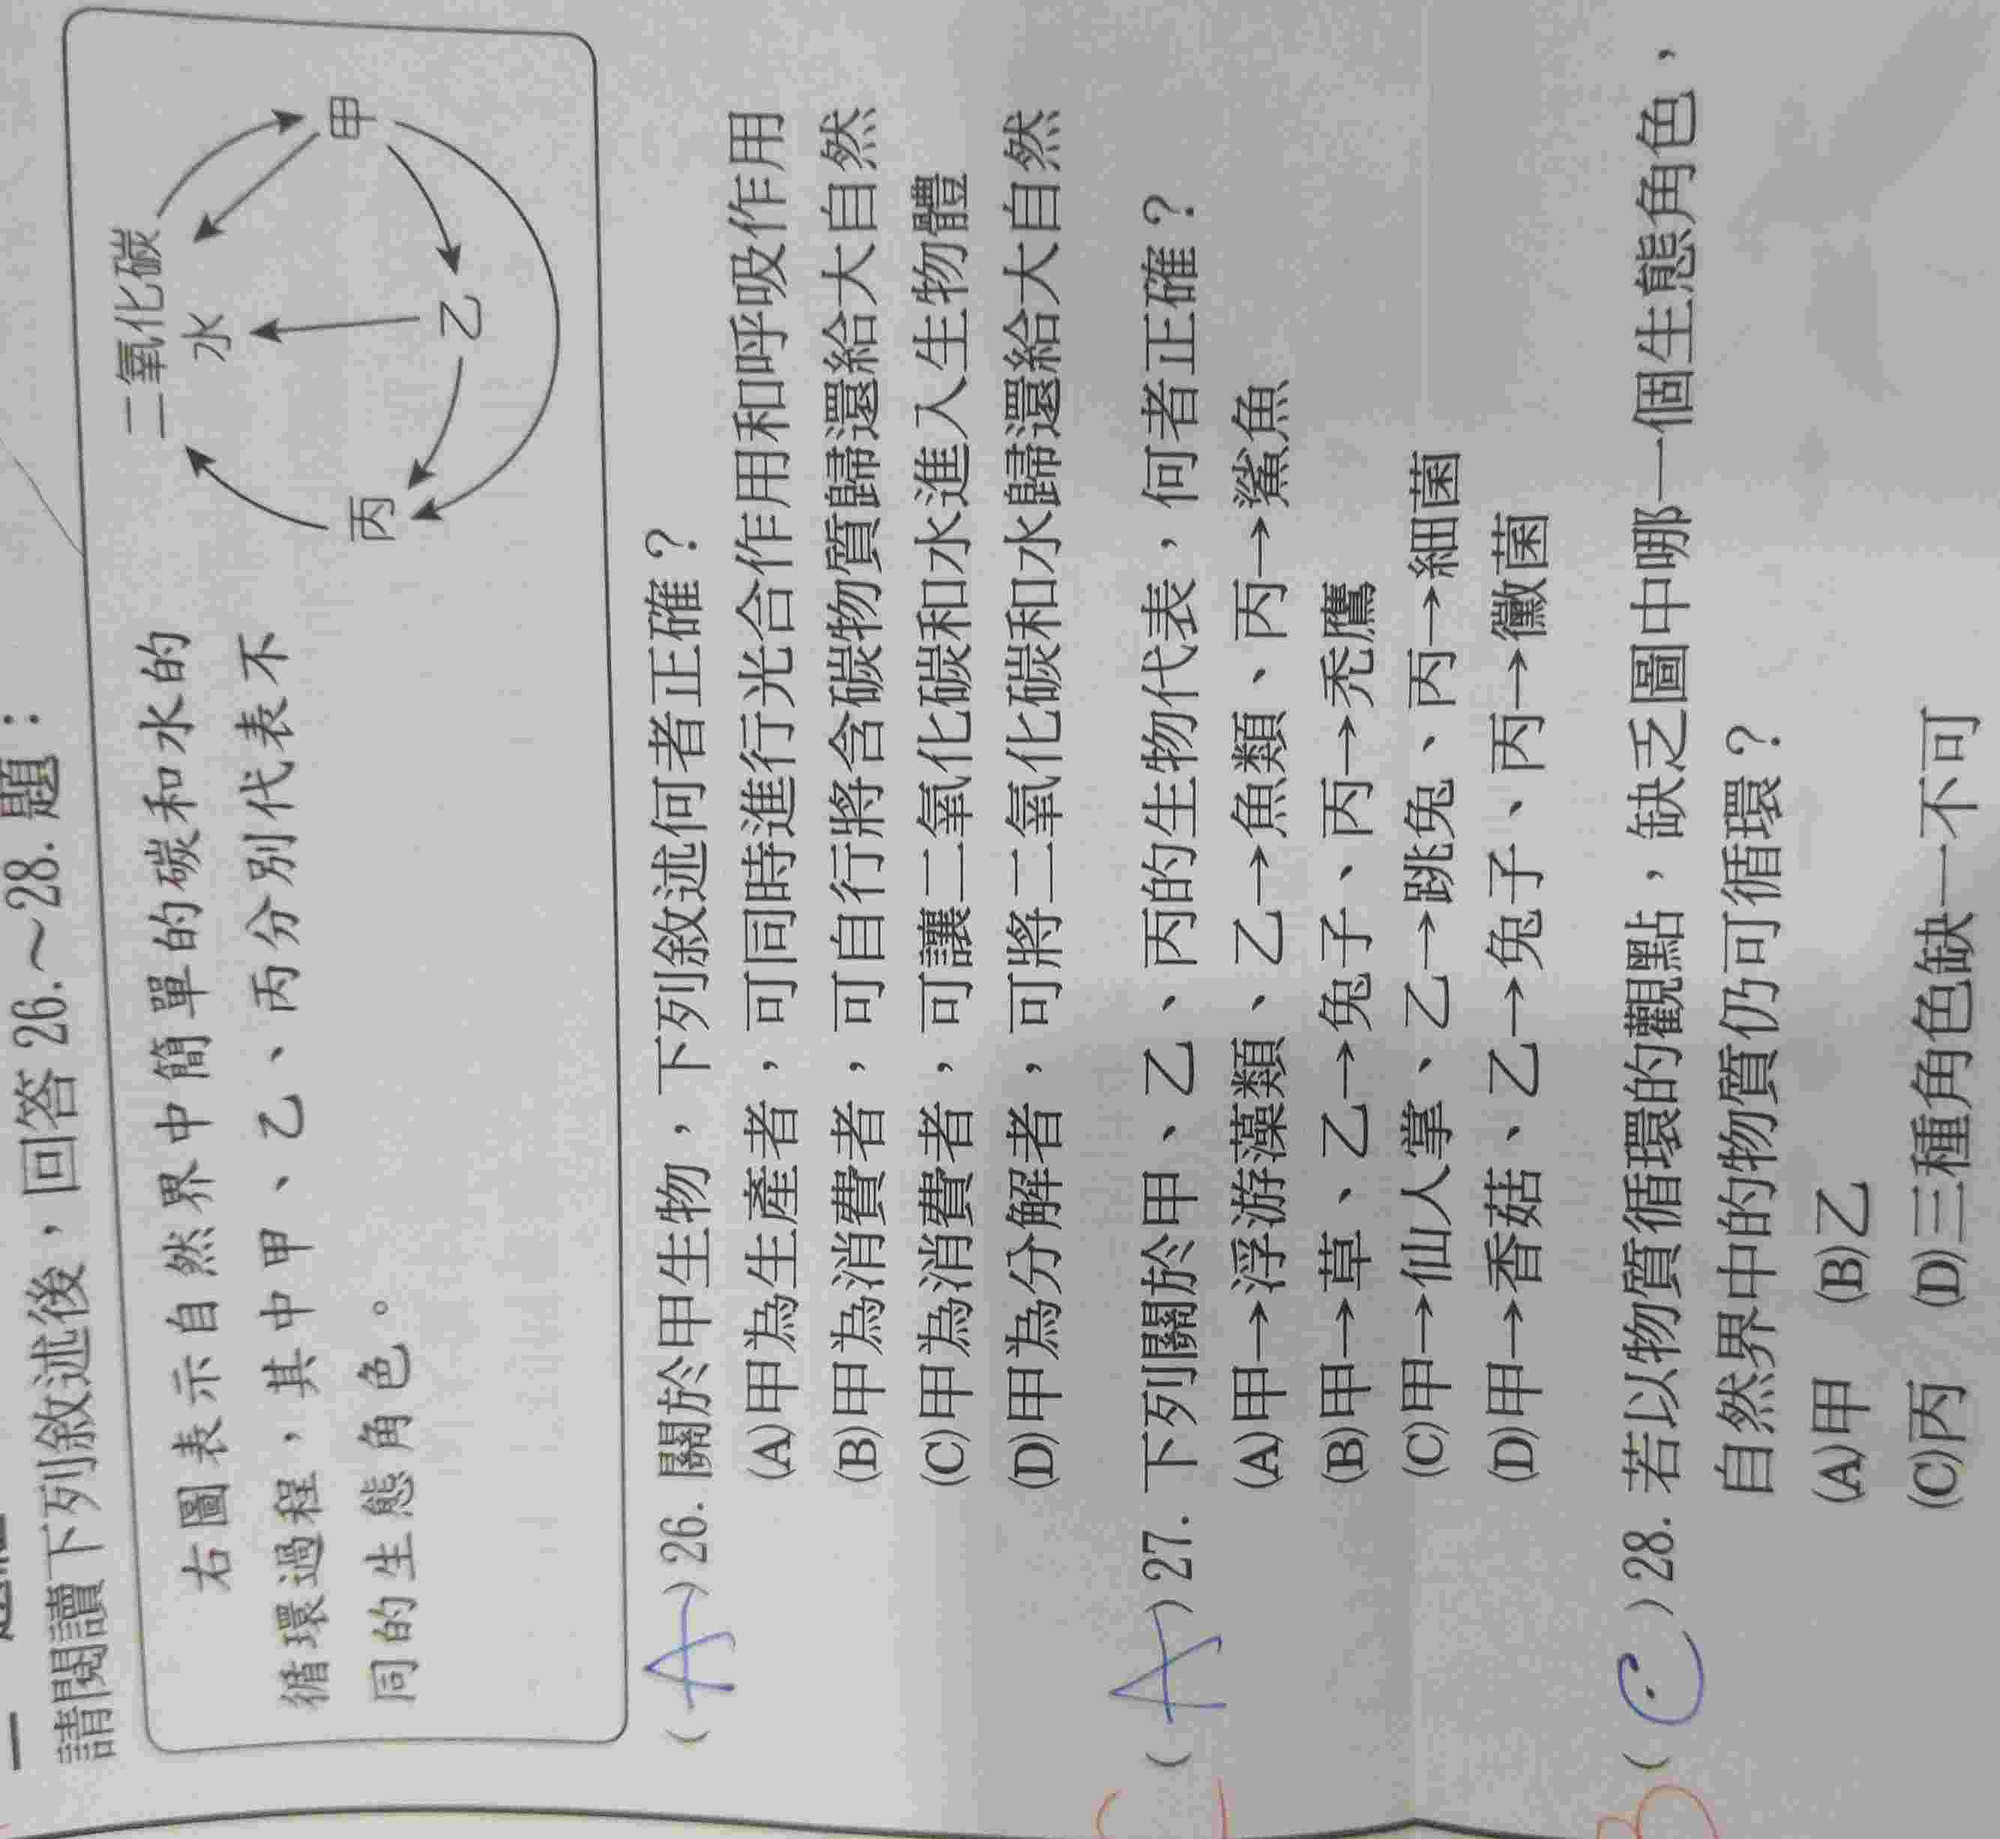 請閱讀下列敘述後，回答 26.～28. 題：
右圖表示自然界中簡單的碳和水的
循環過程，其中甲、乙、丙分別代表不
同的生態角色。
二氧化碳
水
甲
乙
丙
( A ) 26. 關於甲生物，下列敘述何者正確？
(A)甲為生產者，可同時進行光合作用和呼吸作用
(B)甲為消費者，可自行將含碳物質歸還給大自然
(C)甲為消費者，可讓二氧化碳和水進入生物體
(D)甲為分解者，可將二氧化碳和水歸還給大自然
C ( A ) 27. 下列關於甲、乙、丙的生物代表，何者正確？
(A)甲→浮游藻類、乙→魚類、丙→鯊魚
(B)甲→草、乙→兔子、丙→禿鷹
(C)甲→仙人掌、乙→跳兔、丙→細菌
(D)甲→香菇、乙→兔子、丙→黴菌
B ( C ) 28. 若以物質循環的觀點，缺乏圖中哪一個生態角色，
自然界中的物質仍可循環？
(A)甲 (B)乙
(C)丙 (D)三種角色缺一不可